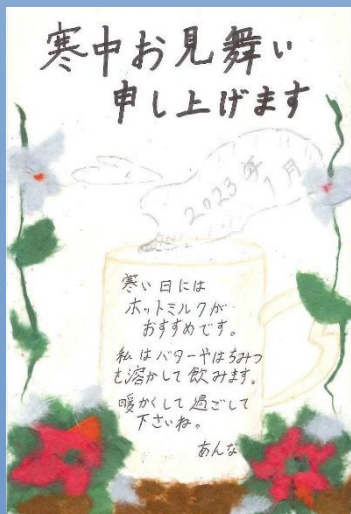 寒中お見舞い
申し上げます
2023年
1月
寒い日には
ホットミルクが
おすすめです。
私はバターやはちみつ
を溶かして飲みます。
暖かくして過ごして
下さいね。
あんな